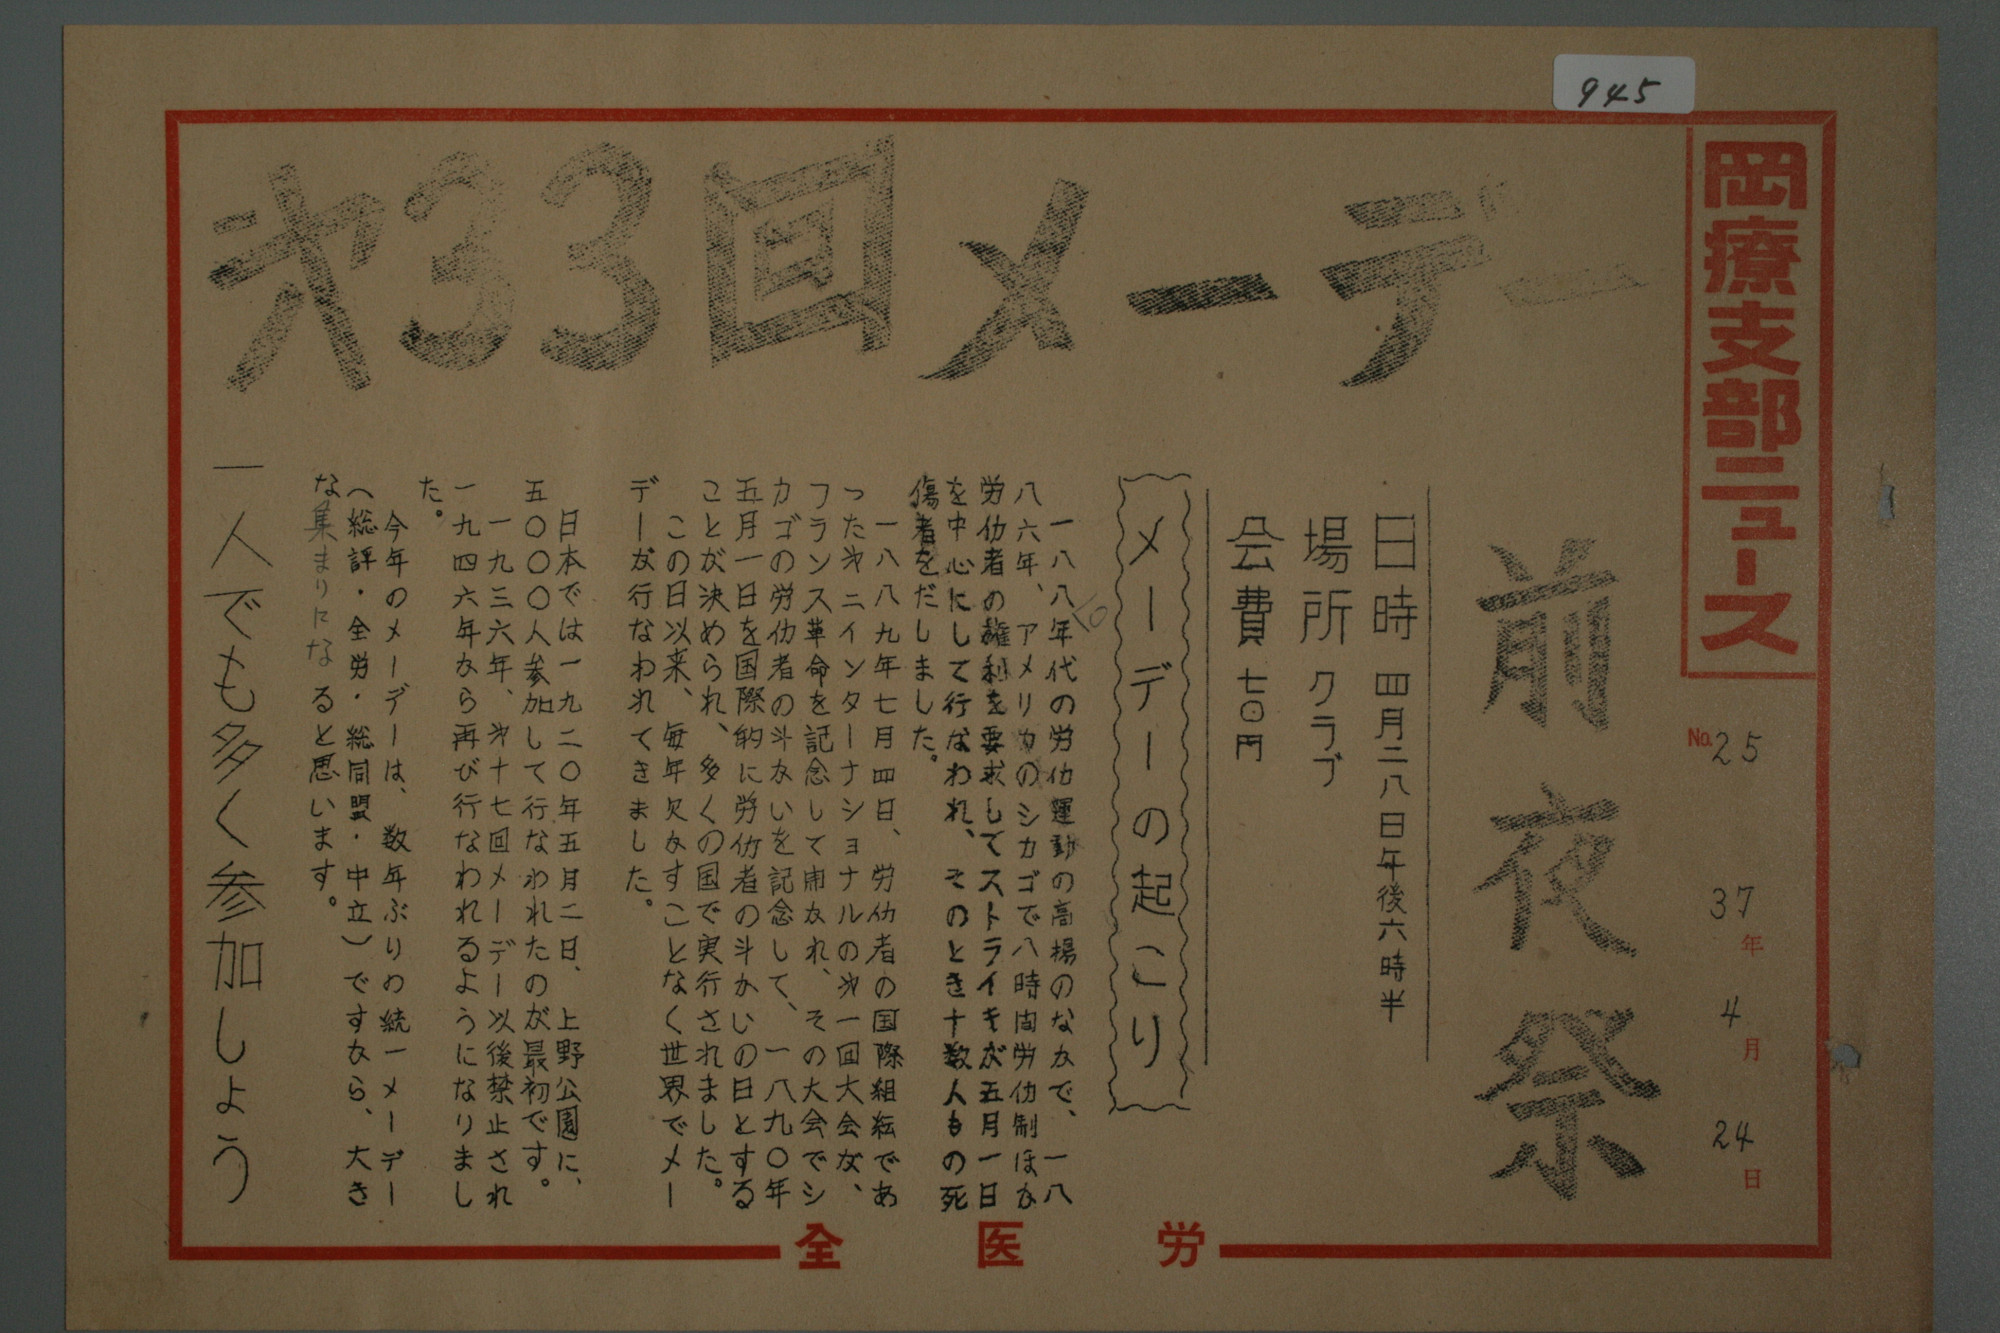 945
岡療支部ニュース
No.25
37年4月24日
才33回メーデー
前夜祭
日時 四月二八日午後六時半
場所 クラブ
会費 七〇円
メーデーの起こり
一八八〇年代の労仂運動の高揚のなかで、一八
八六年、アメリカのシカゴで八時間労仂制ほか
労仂者の権利を要求してストライキが五月一日
を中心にして行なわれ、そのとき十数人もの死
傷者をだしました。
一八八九年七月四日、労仂者の国際組紜であ
った才二インターナショナルの才一回大会が、
フランス革命を記念して開かれ、その大会でシ
カゴの労仂者の斗かいを記念して、一八九〇年
五月一日を国際的に労仂者の斗かいの日とする
ことが決められ、多くの国で実行されました。
この日以来、毎年欠かすことなく世界でメー
デーが行なわれてきました。
日本では一九二〇年五月二日、上野公園に、
五〇〇〇人参加して行なわれたのが最初です。
一九三六年、才十七回メーデー以後禁止され
一九四六年から再び行なわれるようになりまし
た。
今年のメーデーは、数年ぶりの統一メーデー
（総評・全労・総同盟・中立）ですから、大き
な集まりになると思います。
一人でも多く参加しよう
全医労